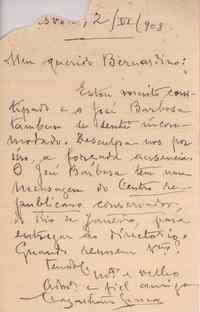 2/IX/908
Meu querido Bernardino:
Estou muito cons-
tipado e o José Barbosa
tambem se sente incom-
modado. Desculpa-nos por
isso, a forçada ausencia.
O José Barbosa tem uma
mensagem do Centro re-
publicano conservador,
do Rio de Janeiro, para
entregar ao Directorio.
Quando reunem vcs?
velho
e fiel amigo